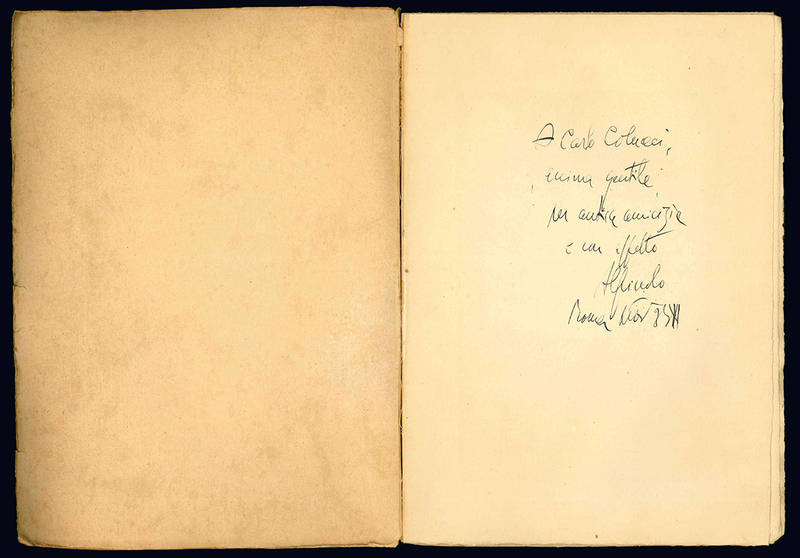 A Carlo Colucci,
anima gentile
per antica amicizia
e con affetto
Alfiindo
Roma Nov